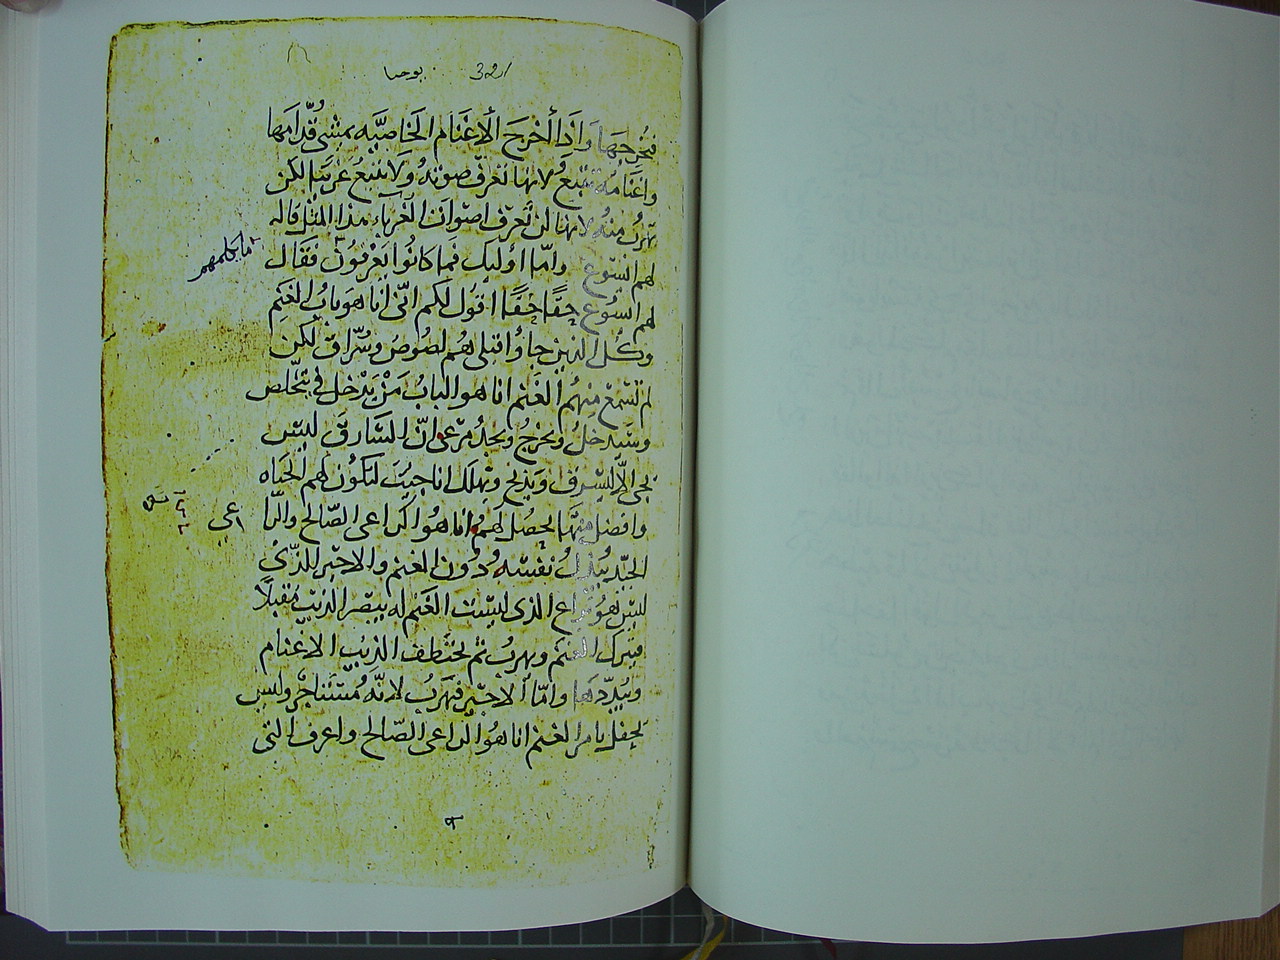 يوحنا 321
فيخرجها وَاذَا أخْرجَ ألاغنَام الخَاصّيَّه يمشي قُدّامَها
واغنَامُه تتبَعُ لانها تعرَف صوتهُ وَلا يتبعُ غريبًا لكن
تهربُ مِنهُ لانها لن تَعرَف اصْوات الغُربَاء هذا المثل قاله
لهم ايسوع وامّا اوليك فما كانُوا يَعْرفُونَ فقَال
ما يكلمهم
لهم ايسُوع حِقًا حِقًا اقول لكم انّي أنا هوَ بابُ الغَنَمِ
وكُل الذين جاوُا قبلي هُم لصُوصٌ وسُرّاق لكن
لم تَسْمَعْ مِنهُم الغنم انا هو البابُ مَنْ يَدْخل في يتخلص
وسَيدخلُ ويخرجُ ويجدُ مرْعى انّ السَارِق ليسَ
يجي الاّ ليسْرق ويَذبح ويُهلك انا جيتُ لتكُون لهم الحَيَاه
وافضَل منهَا يحصُل لهُم انا هُوَ الرَاعى الصّالح والرّا
اعي
الجيّد يُبذلُ نفسَه دُون الغنم والاجير الذي
ليسَ هوَ بَراع الذى ليسَت الغَنم له يبصر الذيبَ مُقبلاً
فيترك الغنم ويهربُ ثم يخَتطف الذيب الاغنام
ويُبدِّدَها وامّا الاجير فيَهربُ لانّه مُستَاجرٌ وليس
يَحِفل بامر الغنم انا هُوَ الراعى الصّالح واعرف التى